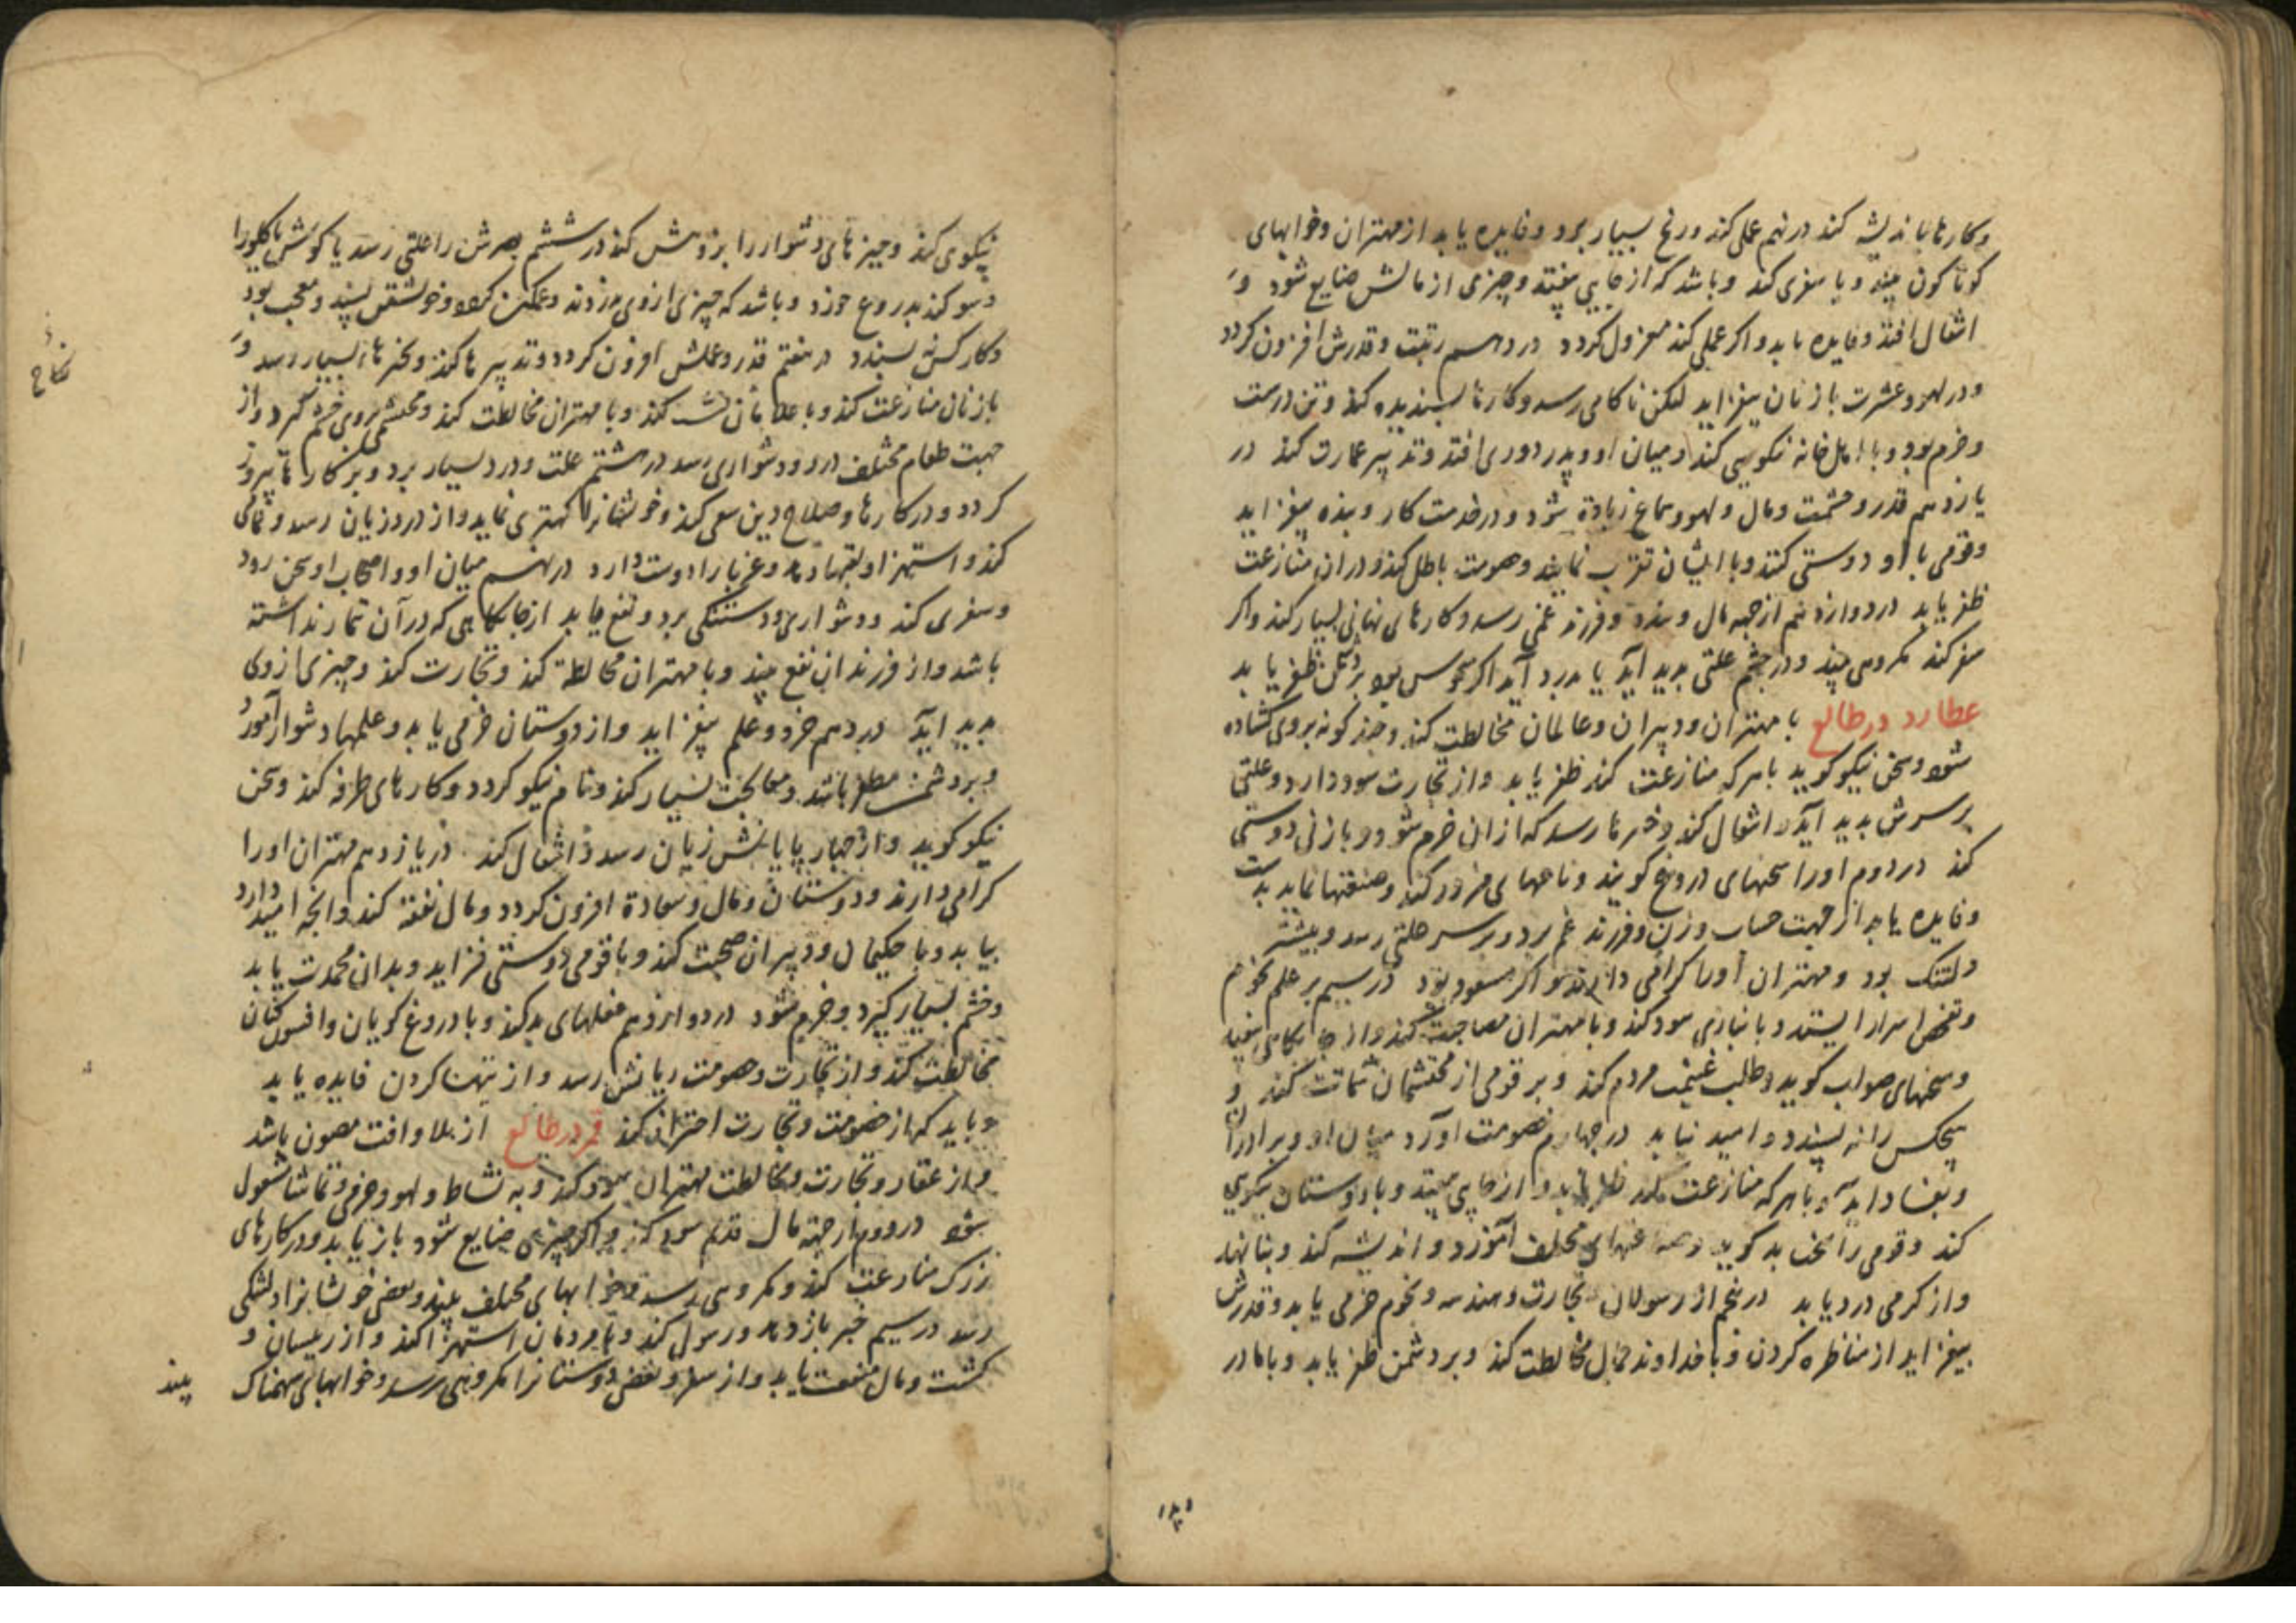 وکارها باندیشه کند در نهم عملی کند ورنج بسیار برد وفایده یابد از مهتران وخوابهای
کوناکون بیند ویا سفری کند وباشد که از جایی بیفتد وچیزی از مالش ضایع شود و
اشغال افتد وفایده یابد واکر عملی کند معزول کردد در دهم رتبت وقدرش افزون کردد
ودر لهو وعشرت با زنان بیفزاید لیکن ناکامی رسد وکارها پسندیده کند وتن درست
وخرم بود وبا اهل خانه نکویی کند ومیان او وپدر دوری افتد وتدبیر عمارت کند در
یازدهم قدر وحشمت ومال ولهو وسماع زیادة شود ودر خدمت کار وبنده بیفزاید
وقومی با او دوستی کنند وبا ایشان تقرب نمایند وخصومت باطل کند ودران منازعت
ظفر یابد در دوازدهم از جهه مال وفرزند غمی رسد وکارهای نهانی بسیار کند واکر
سفر کند مکروهی بیند ودر چشم علتی بدید آید یا بدرد آید اکر نحوس بود بر دشمن ظفر یابد
عطارد در طالع با مهتران ودبیران وعالمان مخالطت کند وجند کونه بروی کشاده
شود وسخن نیکو کوید با هر که منازعت کند ظفر یابد واز تجارت سود دارد وعلتی
بر سرش بدید آید واشغال کند وخبرها رسد که ازان خرم شود وبا زنی دوستی
کند در دوم اورا سخنهای دروغ کویند ونامهای مزور کند وصنعتها نماید بدست
وفایده یابد از جهت حساب وزن وفرزند غم برد وبر سر علتی رسد وبیشتر
دلتنک بود ومهتران اورا کرامی دارند واکر مسعود بود در سیم بر علم نجوم
وتفحص اسرار ایستد وبا نبازی سود کند وبا مهتران مصاحبت کند واز جایکاهی بیفتد
وسخنهای صواب کوید وطلب غنیمت مردم کند وبر قومی از محتشمان شماتت کند و
هیچکس را نه پسندد وامید نیابد در چهارم خصومت آورد میان او وبرادران
وبفساد آید وبا هر که منازعت کند ظفر یابد واز جایی بیفتد وبا دوستان نیکویی
کند وقومی را سخن بد کوید وصنعتهای مختلف آموزد واندیشه کند وبنا نهد
واز کرمی درد یابد در پنجم از رسولان وتجارت وهندسه ونجوم خرمی یابد وقدرش
بیفزاید از مناظره کردن وبا خداوند جمال مخالطت کند وبر دشمن ظفر یابد وبا مادر
وپدر
نیکوی کند وچیزهای دشوار را پژوهش کند در ششم بصرش را علتی رسد یا کوش یا کلورا
وسوکند بدروغ خورد وباشد که چیزی از وی بدزدند وغمکین کردد وخویشتن پسند ومعجب بود
وکار کس نپسندد در هفتم قدر وعملش افزون کردد وتدبیرها کند وخبرهاء بسیار رسد و
با زنان منازعت کند وبا غلامان نشست کند وبا مهتران مخالطت کند ومحتشمی بروی خشم کیرد واز
جهت طعام مختلف درد ودشواری رسد در هشتم علت ودرد بسیار برد وبر کارها پیروز
کردد ودر کارها وصلاح دین سعی کند وخویشانرا کهتری نماید واز درد زیان رسد ونمامی
کند واستهزا وغربا را دوست دارد در نهم میان او واصحاب او سخن رود
وسفری کند ودشواری ودلتنکی برد ونفع یابد از جایکاهی که در آن تمار نداشته
باشد واز فرزندان نفع بیند وبا مهتران مخالطة کند وتجارت کند وچیزی از وی
بدید آید در دهم خرد وعلم بیفزاید واز دوستان خرمی یابد وعلمهاء دشوار آموزد
وبر دشمن مظفر باشد ومعالجت بسیار کند ونام نیکو کردد وکارهای طرفه کند وسخن
نیکو کوید واز چهارپایانش زیان رسد واشغال کند در یازدهم مهتران اورا
کرامی دارند ودوستان ومال وسعادة افزون کردد ومال نفقة کند وانجه امید دارد
بیابد وبا حکیمان ودبیران صحبت کند وبا قومی دوستی فزاید وبدان محمدت یابد
وخشم بسیار کیرد وخرم شود در دوازدهم فعلهای بد کند وبا دروغ کویان وافسوس کنان
مخالطت کند واز تجارت وخصومت زیانش رسد واز تهنیت کردن فایده یابد
وباید که از خصومت وتجارت احتراز کند قمر در طالع از بلا وافت مصون باشد
واز عقار وتجارت ومخالطت مهتران سود کند وبه نشاط ولهو وخرمی وتماشا مشغول
شود در دوم از جهة مال قدیم سود کند واکر چیزی ضایع شود باز یابد ودر کارهای
بزرک منازعت کند ومکروهی رسد وخوابهای مختلف بیند وبعضی خویشانرا دلتنکی
رسد در سیم خبر باز دهد ورسول کند وبا مردمان استهزا کند واز ریسمان و
کشت ومال منفعت یابد واز سفر وبعضی دوستانرا مکروهی رسد وخوابهای سهمناک
بیند
نکاح